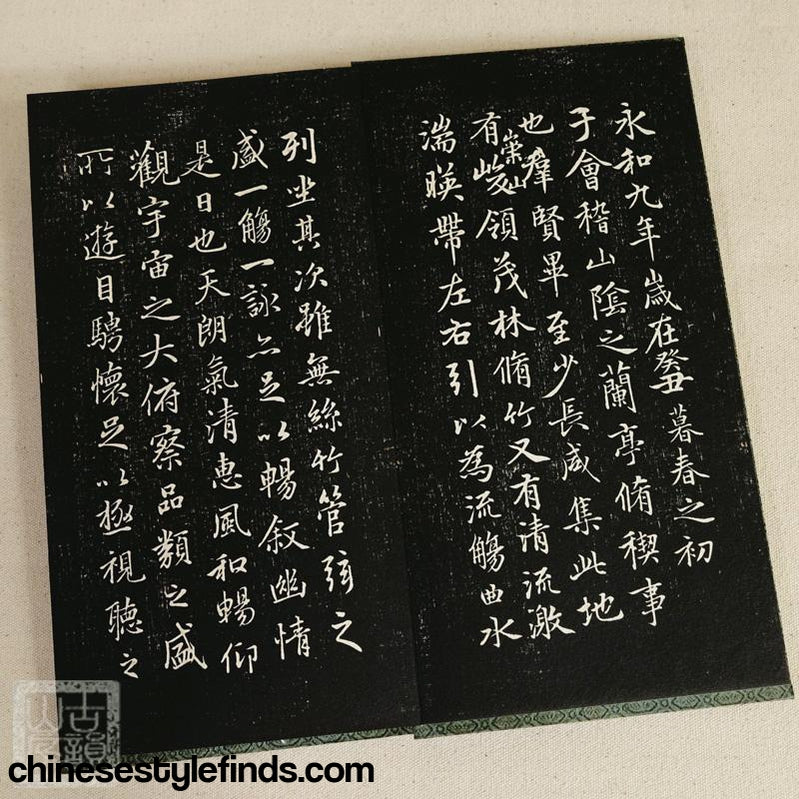 永和九年歲在癸丑暮春之初會
于會稽山陰之蘭亭脩稧事
也羣賢畢至少長咸集此地
有崇山峻領茂林脩竹又有清流激
湍暎帶左右引以為流觴曲水
列坐其次雖無絲竹管弦之
盛一觴一詠亦足以暢敘幽情
是日也天朗氣清惠風和暢仰
觀宇宙之大俯察品類之盛
所以遊目騁懷足以極視聽之
古韻山房
chinesestylefinds.com